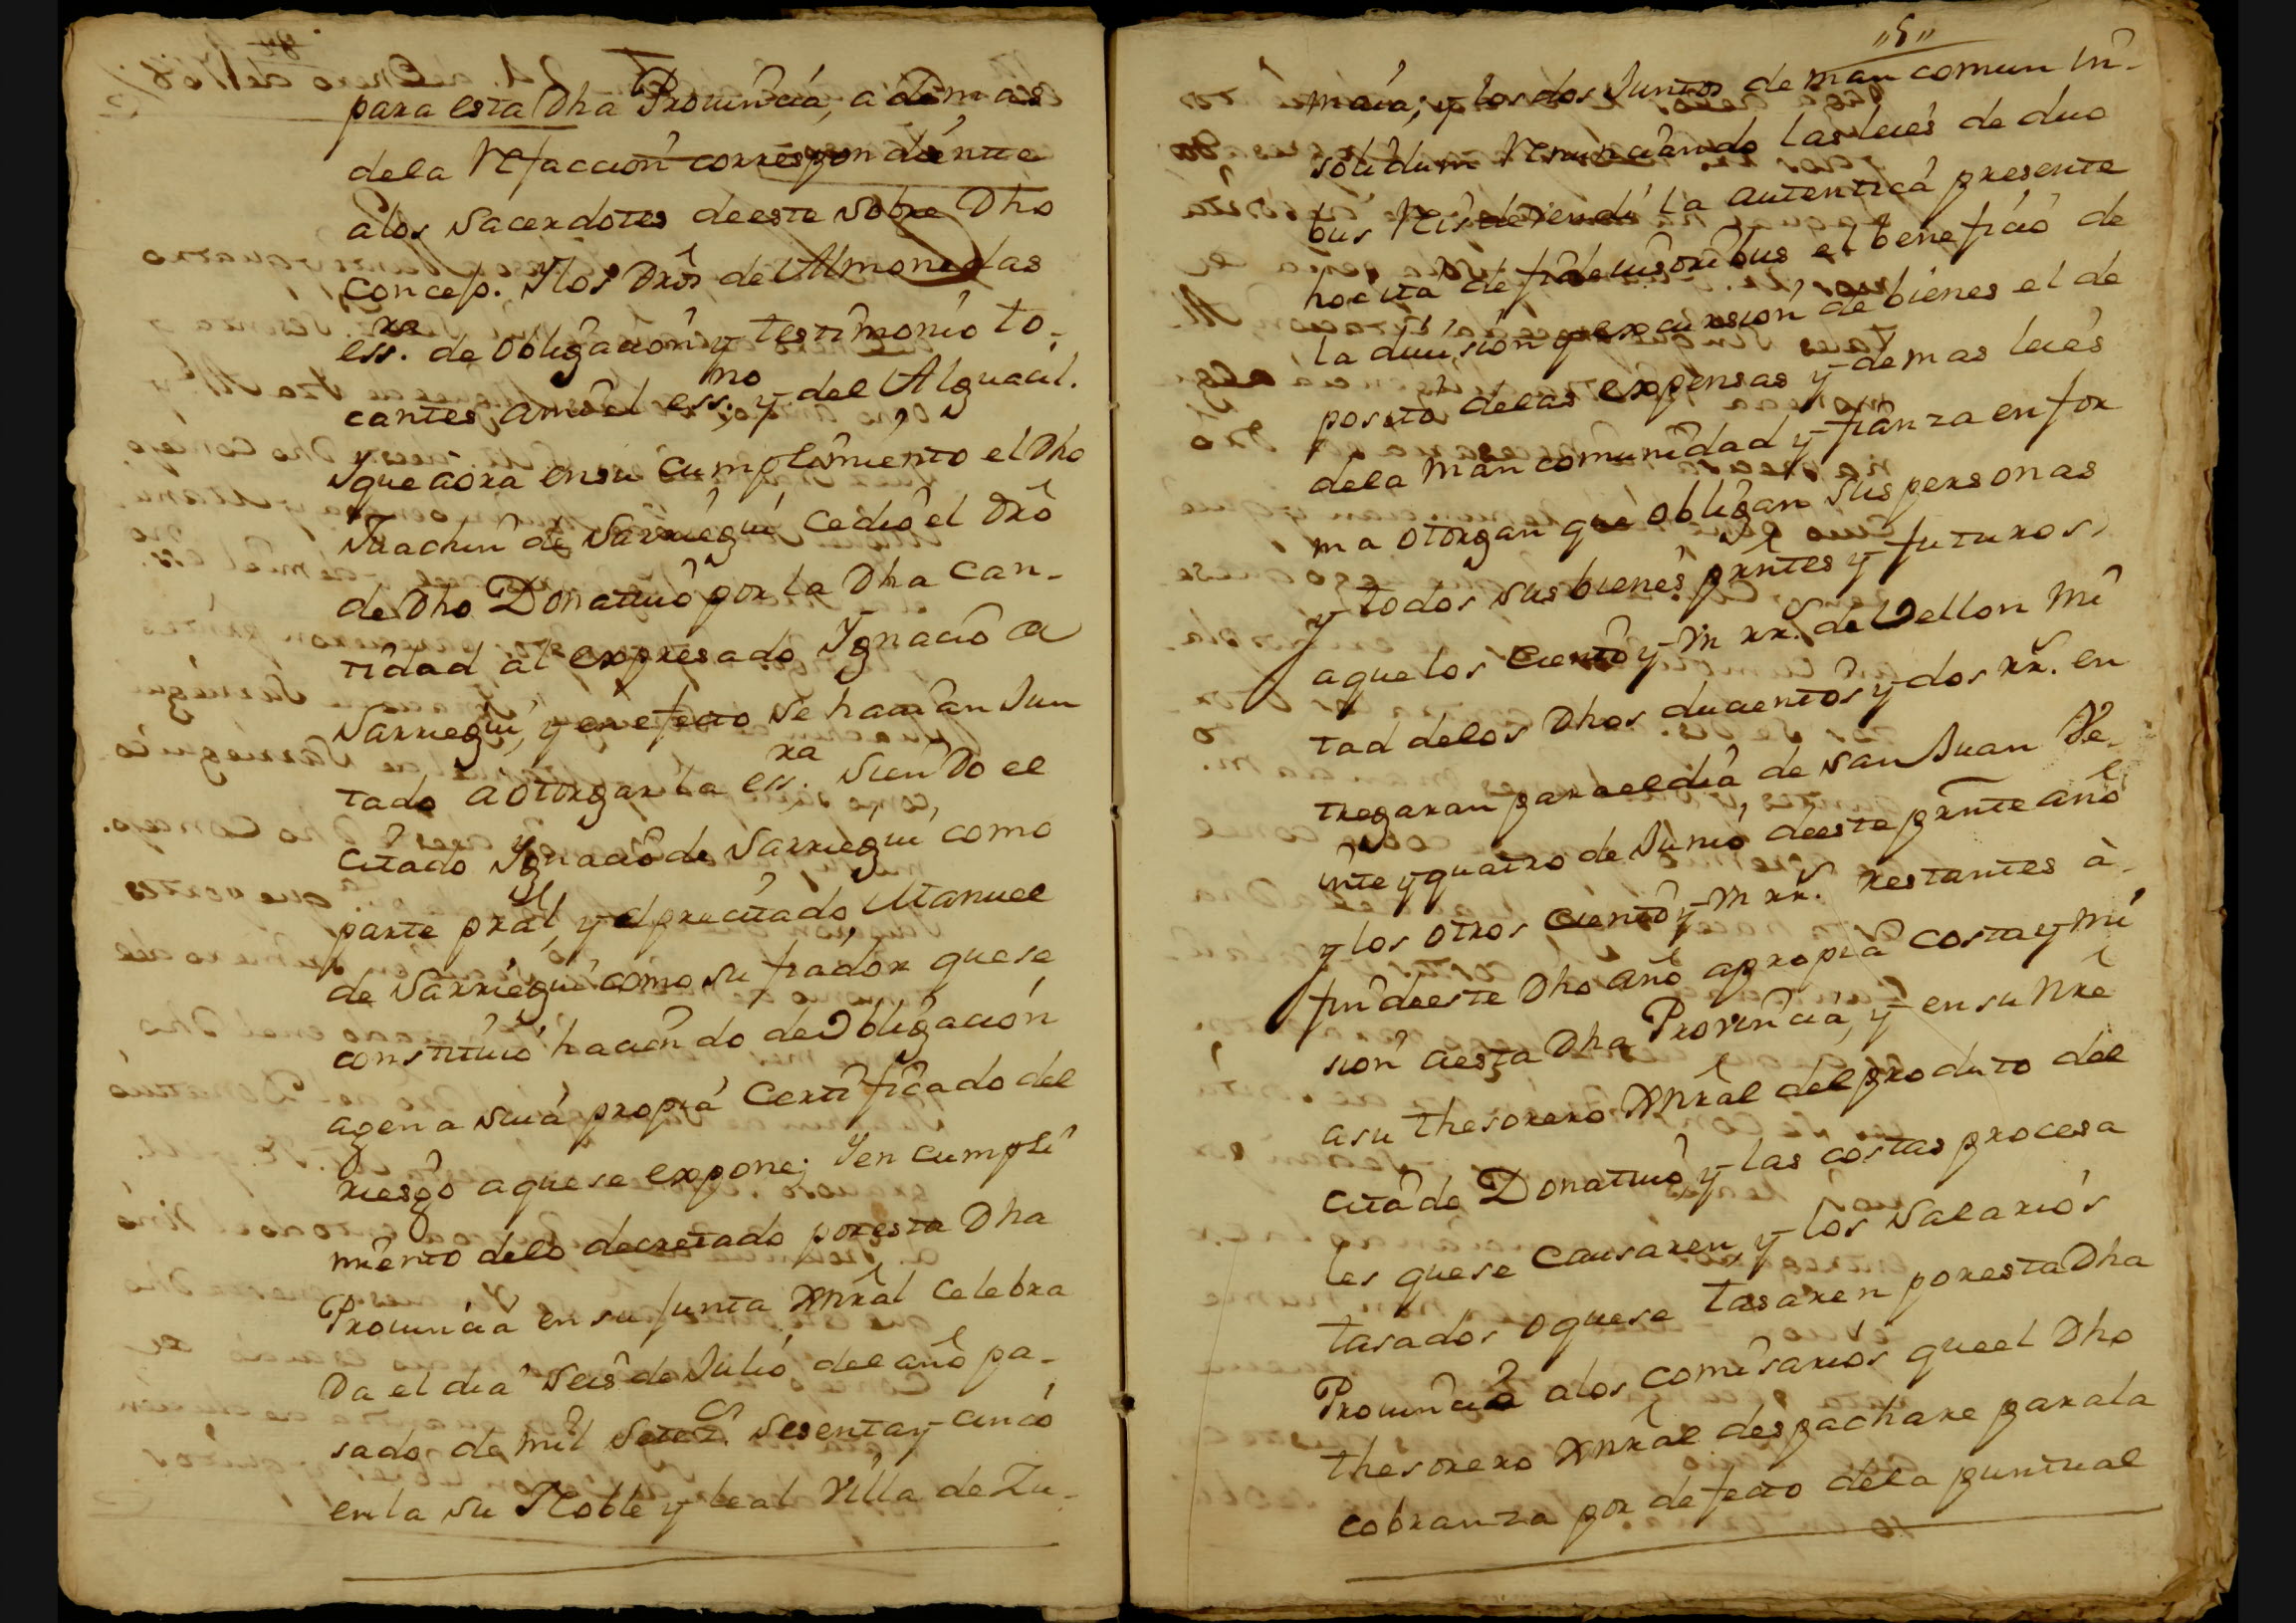 para esta Dha Prouincia, ademas
dela Refaccion correspondiente
alos Sacerdotes deeste sobre Dho
Concejo. Y los Dros del Almonedas
essra. de obligacion y testimonio to-
cantes, ami el essno. y del Alguacil.
Y que aora ensu cumplimiento el Dho
Juachin de Sarriegui cedio el Dro
de Dho Donatiuo por la Dha can-
tidad al expresado Ygnacio de
Sarriegui, y en efecto se hauian Jun
tado aotorgar la essra. Siendo el
citado Ygnacio de Sarriegui, como
parte pral, y el precitado, Manuel
de Sarriegui como su fiador que se
constituió haciendo de Obligacion
agena suia propia Certificado del
riesgo aquese expone; Y en cumpli
miento delo decretado poresta Dha
Prouincia en su Junta Gnral celebra
Da el dia seis de Julio del año pa-
sado de mil Setezs. sesenta y cinco
enla su Noble y leal Villa de Zu-
"5"
maia; y los dos Juntos de man comun in-
solidum Renunciando las leies de duo
bus Reis devendi la autentica presente
hocita de fidelusoribus el beneficio de
la diuision y excursion de bienes el de
posito delas expensas y demas leies
dela mancomunidad y fianza en for
ma otorgan que obligan sus personas
y todos sus bienes prntes y futuros,
aquelos ciento y Vn rrs. de Vellon mi
tad delos Dhos ducientos y dos rrs. en
tregaran para el dia de San Juan Ve-
inte y quatro de Junio, deeste prnte año
y los otros ciento y Vn rrs. restantes à
fin deeste Dho año apropia costa y mi
sion aesta Dha Prouincia, y en su Nre
asu thesorero Gnral del produto del
citado Donatiuo y las costas procesa
les quese causaren, y los Salarios
tasados o quese tasaren poresta Dha
Prouincia alos comisarios que el Dho
thesorero Gnral despachare para la
cobranza por defecto dela puntual